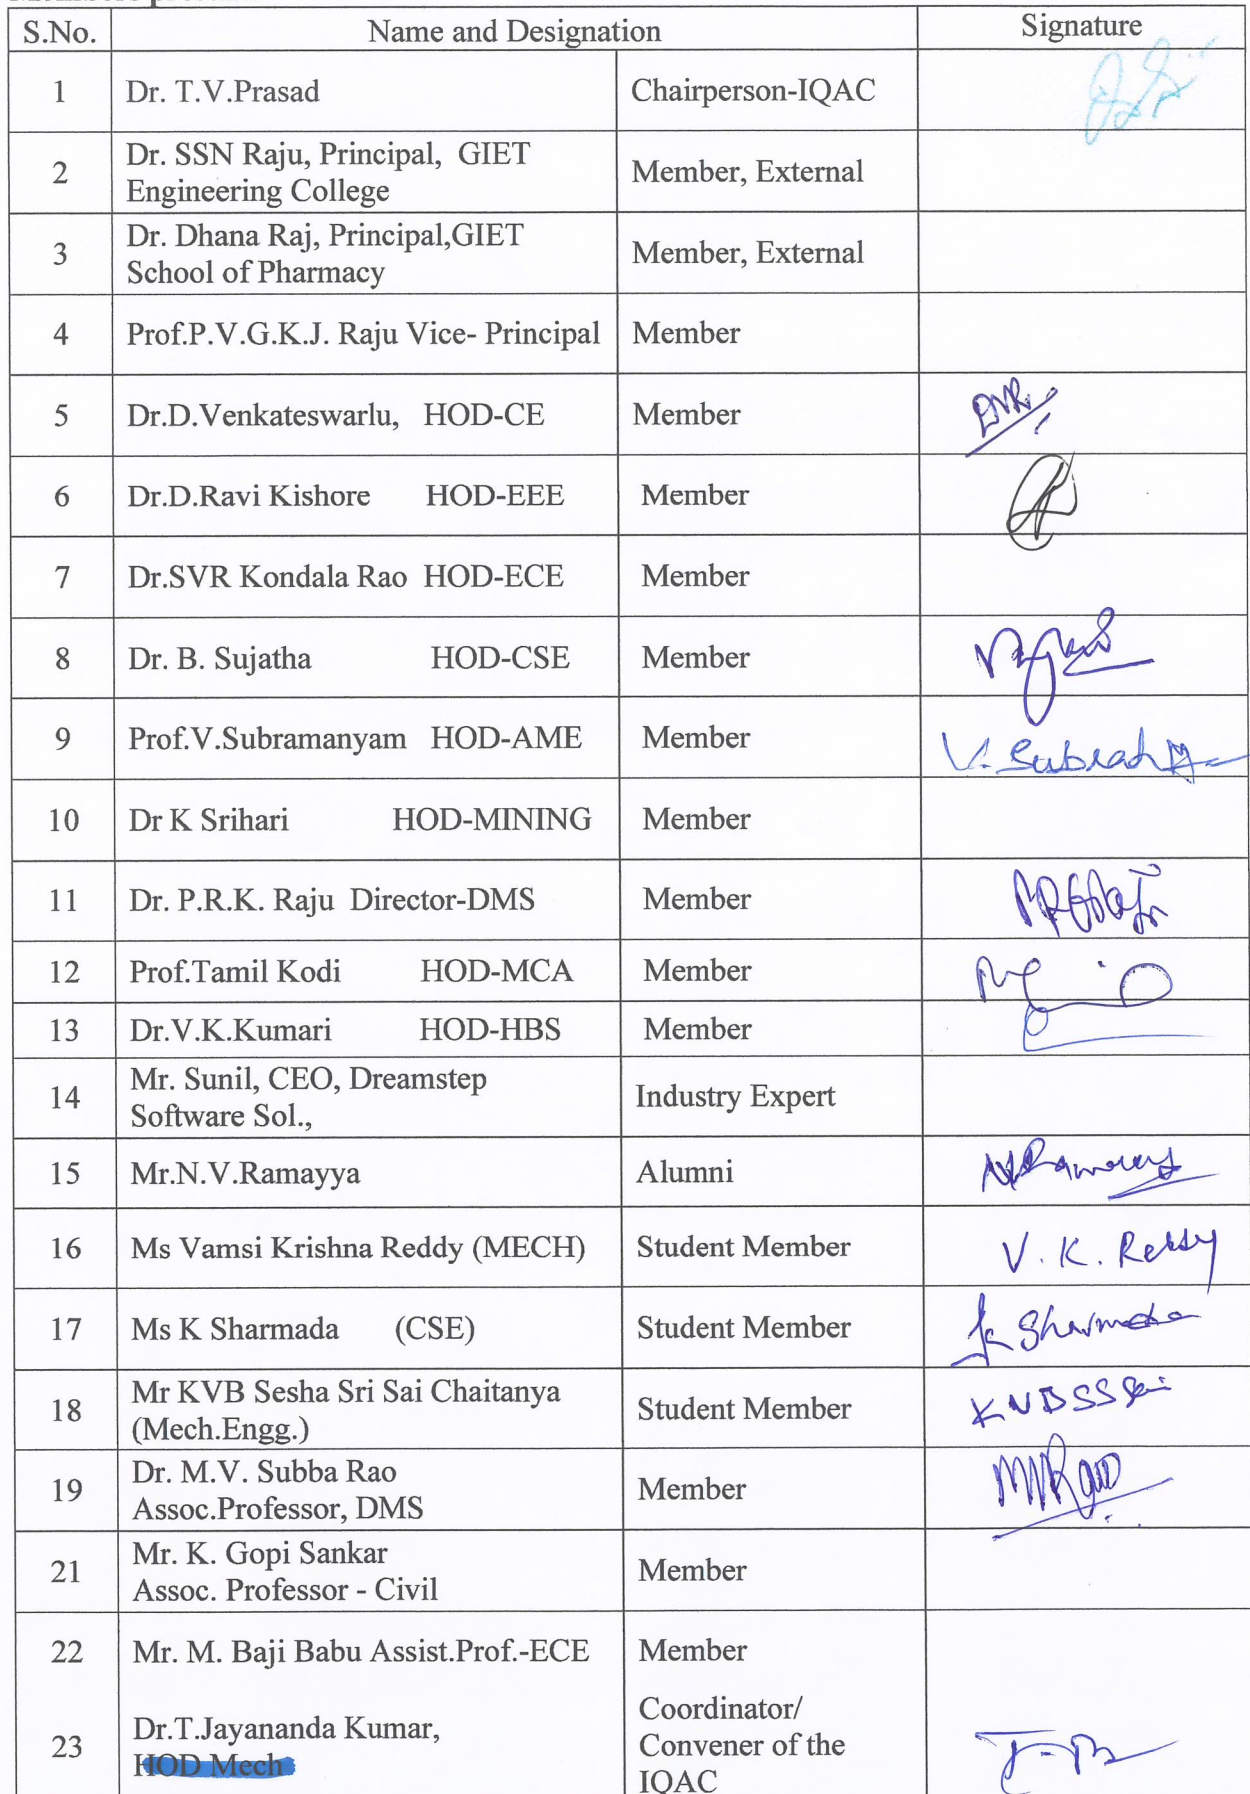 S.No. Name and Designation Signature
1 Dr. T.V.Prasad Chairperson-IQAC
2 Dr. SSN Raju, Principal, GIET
Engineering College Member, External
3 Dr. Dhana Raj, Principal,GIET
School of Pharmacy Member, External
4 Prof.P.V.G.K.J. Raju Vice- Principal Member
5 Dr.D.Venkateswarlu, HOD-CE Member
6 Dr.D.Ravi Kishore HOD-EEE Member
7 Dr.SVR Kondala Rao HOD-ECE Member
8 Dr. B. Sujatha HOD-CSE Member
9 Prof.V.Subramanyam HOD-AME Member
10 Dr K Srihari HOD-MINING Member
11 Dr. P.R.K. Raju Director-DMS Member
12 Prof.Tamil Kodi HOD-MCA Member
13 Dr.V.K.Kumari HOD-HBS Member
14 Mr. Sunil, CEO, Dreamstep
Software Sol., Industry Expert
15 Mr.N.V.Ramayya Alumni
16 Ms Vamsi Krishna Reddy (MECH) Student Member V. K. Reddy
17 Ms K Sharmada (CSE) Student Member K Sharmada
18 Mr KVB Sesha Sri Sai Chaitanya
(Mech.Engg.) Student Member KVBSSSai
19 Dr. M.V. Subba Rao
Assoc.Professor, DMS Member MVRao
21 Mr. K. Gopi Sankar
Assoc. Professor - Civil Member
22 Mr. M. Baji Babu Assist.Prof.-ECE Member
23 Dr.T.Jayananda Kumar,
HOD Mech Coordinator/
Convener of the
IQAC